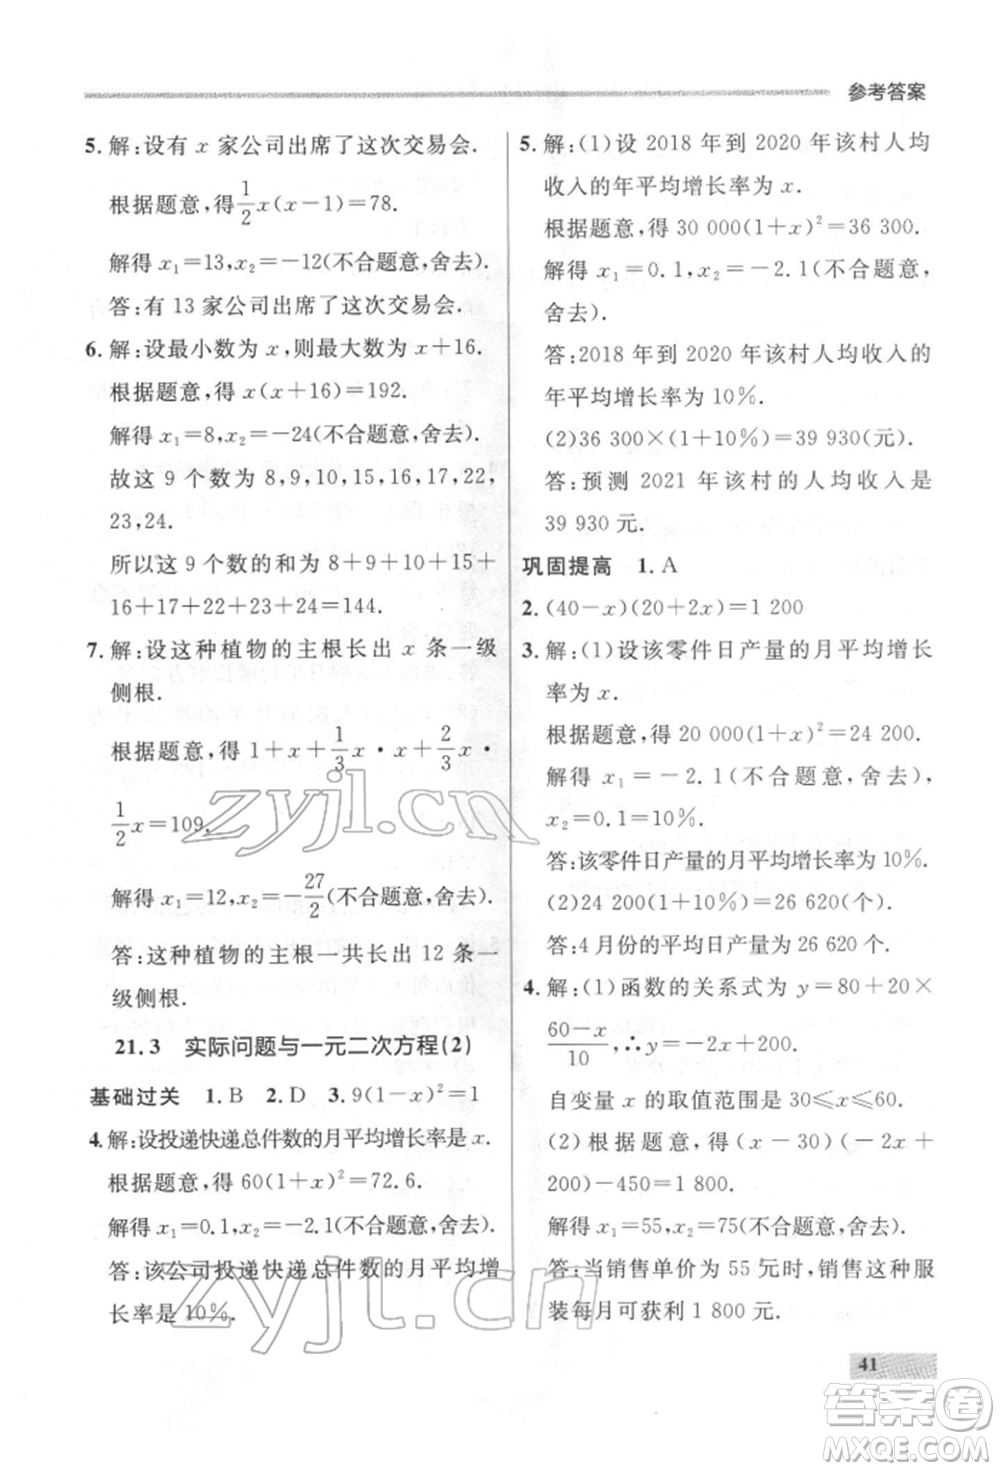 参考答案
5. 解:设有 x 家公司出席了这次交易会.
根据题意,得 1/2 x(x-1)=78.
解得 x₁=13,x₂=-12(不合题意,舍去).
答:有 13 家公司出席了这次交易会.
6. 解:设最小数为 x,则最大数为 x+16.
根据题意,得 x(x+16)=192.
解得 x₁=8,x₂=-24(不合题意,舍去).
故这 9 个数为 8,9,10,15,16,17,22,
23,24.
所以这 9 个数的和为 8+9+10+15+
16+17+22+23+24=144.
7. 解:设这种植物的主根长出 x 条一级
侧根.
根据题意,得 1+x+1/3 x·x+2/3 x·
1/2 x=109,
解得 x₁=12,x₂=-27/2(不合题意,舍去).
答:这种植物的主根一共长出 12 条一
级侧根.
21.3 实际问题与一元二次方程(2)
基础过关 1. B 2. D 3. 9(1-x)²=1
4. 解:设投递快递总件数的月平均增长率是 x.
根据题意,得 60(1+x)²=72.6.
解得 x₁=0.1,x₂=-2.1(不合题意,舍去).
答:该公司投递快递总件数的月平均增
长率是 10%.
5. 解:(1)设 2018 年到 2020 年该村人均
收入的年平均增长率为 x.
根据题意,得 30 000(1+x)²=36 300.
解得 x₁=0.1,x₂=-2.1(不合题意,
舍去).
答:2018 年到 2020 年该村人均收入的
年平均增长率为 10%.
(2)36 300×(1+10%)=39 930(元).
答:预测 2021 年该村的人均收入是
39 930 元.
巩固提高 1. A
2. (40-x)(20+2x)=1 200
3. 解:(1)设该零件日产量的月平均增长
率为 x.
根据题意,得 20 000(1+x)²=24 200.
解得 x₁=-2.1(不合题意,舍去),
x₂=0.1=10%.
答:该零件日产量的月平均增长率为 10%.
(2)24 200×(1+10%)=26 620(个).
答:4 月份的平均日产量为 26 620 个.
4. 解:(1)函数的关系式为 y=80+20×
(60-x)/10,∴y=-2x+200.
自变量 x 的取值范围是 30≤x≤60.
(2)根据题意,得(x-30)(-2x+
200)-450=1 800.
解得 x₁=55,x₂=75(不合题意,舍去).
答:当销售单价为 55 元时,销售这种服
装每月可获利 1 800 元.
41
zyjl.cn
zyjl.cn
答案圈
MXQE.COM